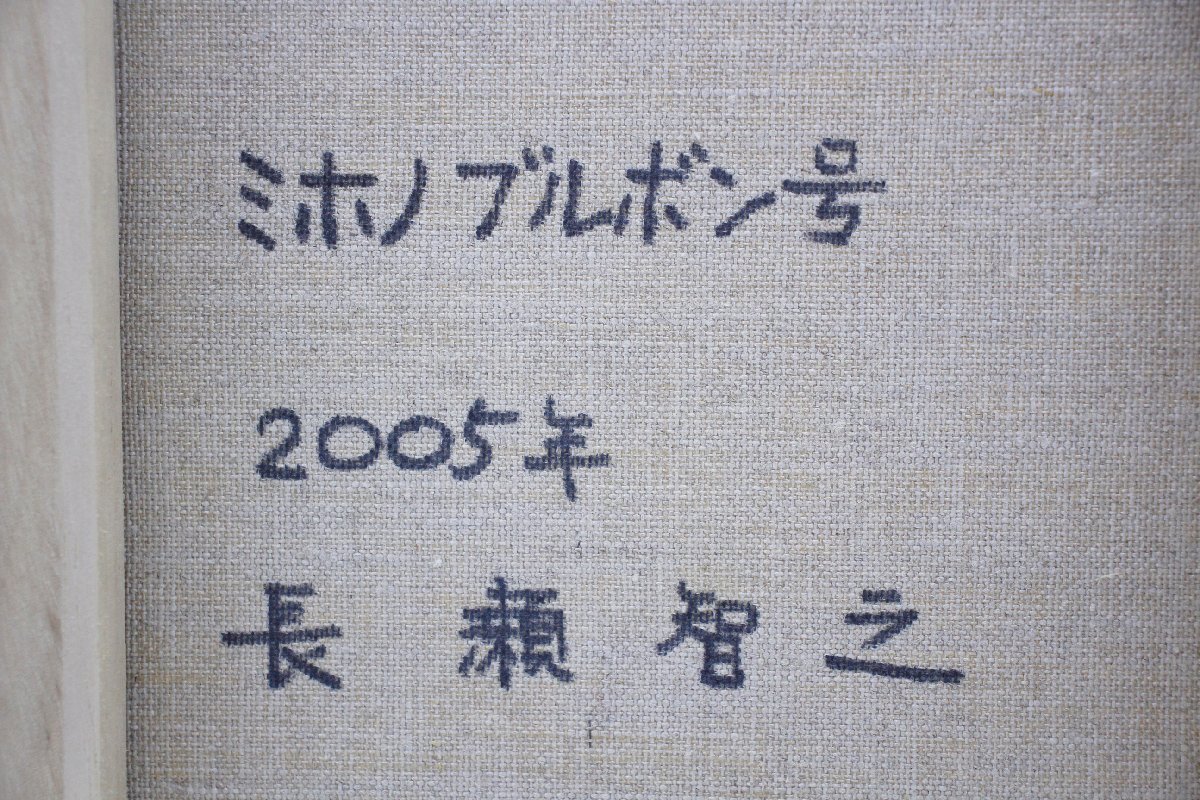 ミホノブルボン号
2005年
長瀬智之